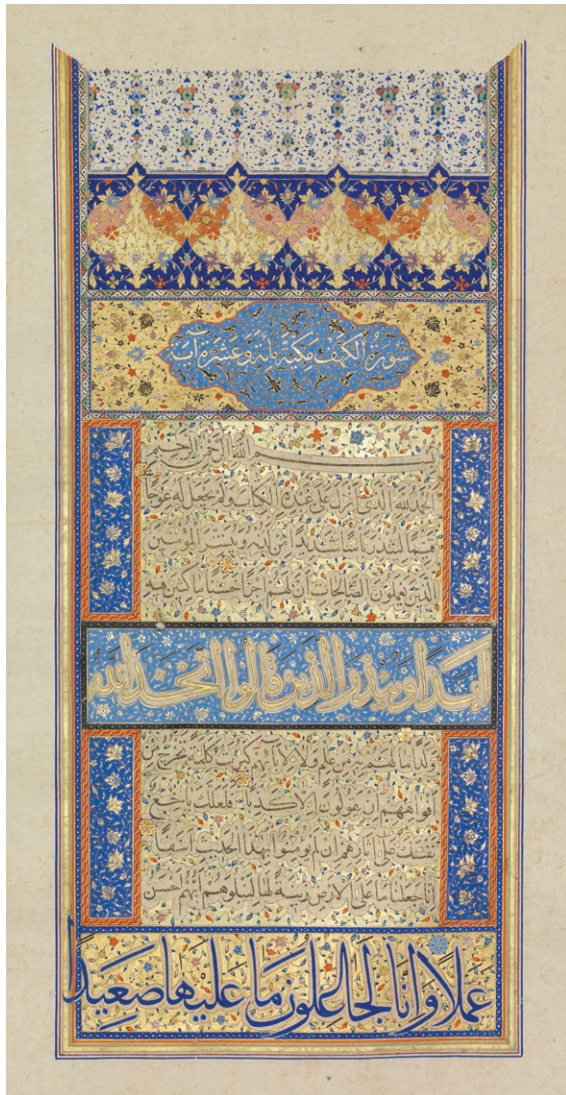 سورة الكهف مكية مائة وعشرة آية
بسم الله الرحمن الرحيم
الحمد لله الذي انزل على عبده الكتاب ولم يجعل له عوجا
قيما لينذر باسا شديدا من لدنه ويبشر المؤمنين
الذين يعملون الصالحات ان لهم اجرا حسنا ماكثين فيه
ابدا وينذر الذين قالوا اتخذ الله
ولدا ما لهم به من علم ولا لابائهم كبرت كلمة تخرج من
افواههم ان يقولون الا كذبا فلعلك باخع
نفسك على اثارهم ان لم يؤمنوا بهذا الحديث اسفا
انا جعلنا ما على الارض زينة لها لنبلوهم ايهم احسن
عملا وانا لجاعلون ما عليها صعيدا